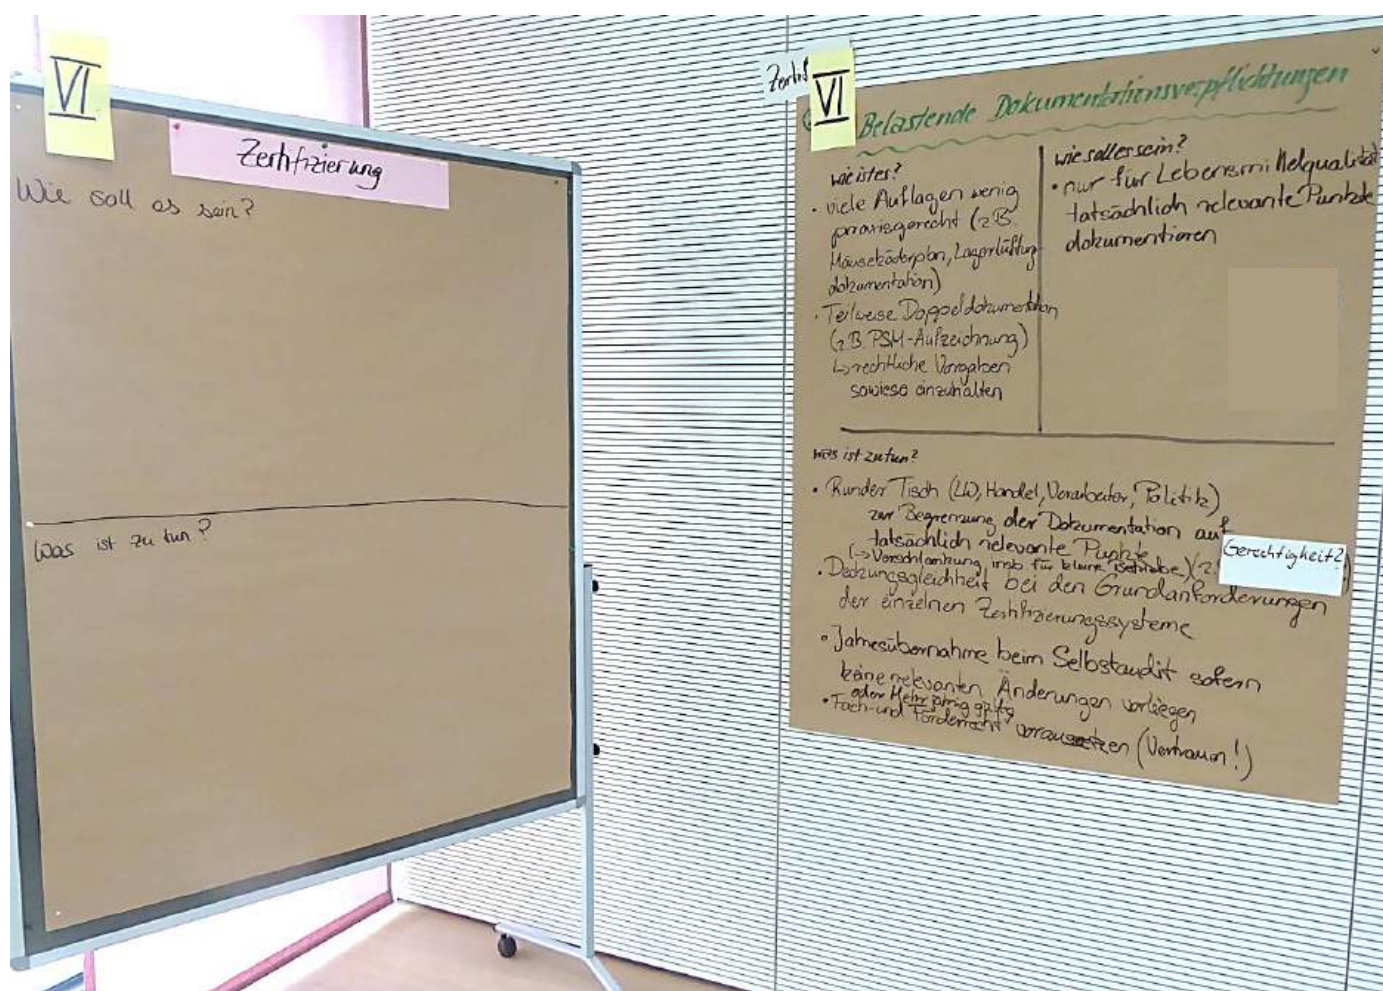 VI
Zertifizierung
Wie soll es sein?
Was ist zu tun?
VI
Belastende Dokumentationsverpflichtungen
wie ist es?
• viele Auflagen wenig
praxisgerecht (z.B.
Mäuseköderplan, Lagerlüftung
dokumentation)
• Teilweise Doppeldokumentation
(z.B. PSM-Aufzeichnung)
↳ rechtliche Vorgaben
sowieso einzuhalten
wie soll es sein?
• nur für Lebensmittelqualität
tatsächlich relevante Punkte
dokumentieren
was ist zu tun?
• Runder Tisch (LW, Handel, Verarbeiter, Politik)
zur Begrenzung der Dokumentation auf
tatsächlich relevante Punkte
(→ Verschlankung insb. für kleine Betriebe)
Gerechtigkeit?
• Deckungsgleichheit bei den Grundanforderungen
der einzelnen Zertifizierungssysteme
• Jahresübernahme beim Selbstaudit sofern
keine relevanten Änderungen vorliegen
oder Mehrjährig gültig
• Fach- und Förderrecht voraussetzen (Vertrauen!)